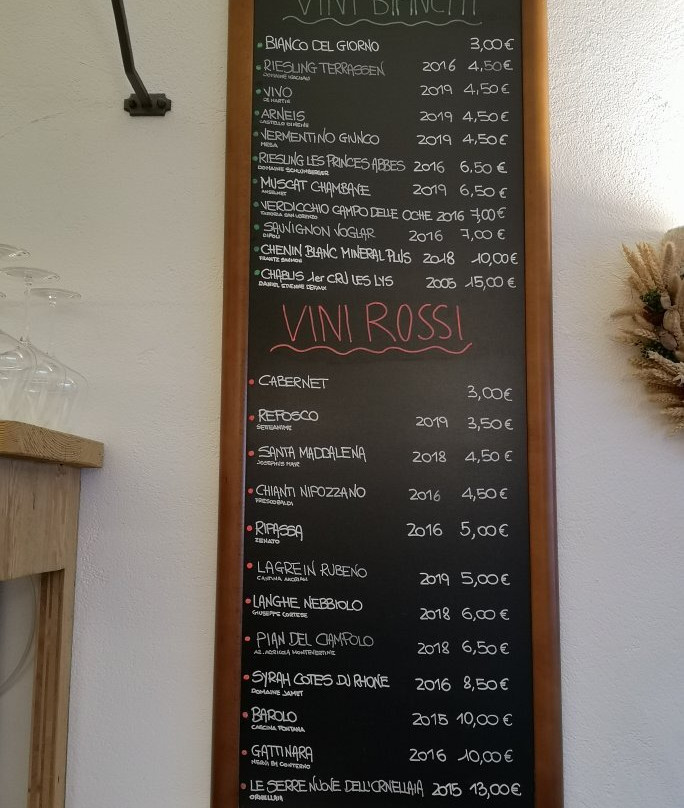 VINI BIANCHI
BIANCO DEL GIORNO 3,00€
RIESLING TERRASSEN 2016 4,50€
VIVO 2019 4,50€
DE MARTIN
ARNEIS 2019 4,50€
VERMENTINO GIUNCO 2019 4,50€
MESA
RIESLING LES PRINCES ABBES 2016 6,50€
DOMAINE SCHLUMBERGER
MUSCAT CHAMBAVE 2019 6,50€
ANSELMET
VERDICCHIO CAMPO DELLE OCHE 2016 7,00€
FATTORIA SAN LORENZO
SAUVIGNON VOGLAR 2016 7,00€
CHENIN BLANC MINERAL PLUS 2018 10,00€
FRANTZ SAUMON
CHABLIS 1er CRU LES LYS 2005 15,00€
DANIEL ETIENNE DEFAIX
VINI ROSSI
CABERNET 3,00€
REFOSCO 2019 3,50€
SETTEANIME
SANTA MADDALENA 2018 4,50€
JOSEPHUS MAYR
CHIANTI NIPOZZANO 2016 4,50€
FRESCOBALDI
RIPASSA 2016 5,00€
ZENATO
LAGREIN RUBENO 2019 5,00€
CANTINA ANDRIAN
LANGHE NEBBIOLO 2018 6,00€
GIUSEPPE CORTESE
PIAN DEL CIAMPOLO 2018 6,50€
AZ. AGRICOLA MONTEVERTINE
SYRAH COTES DU RHONE 2016 8,50€
DOMAINE JAMET
BAROLO 2015 10,00€
CASCINA FONTANA
GATTINARA 2016 10,00€
NERVI DI CONTERNO
LE SERRE NUOVE DELL'ORNELLAIA 2015 13,00€
ORNELLAIA